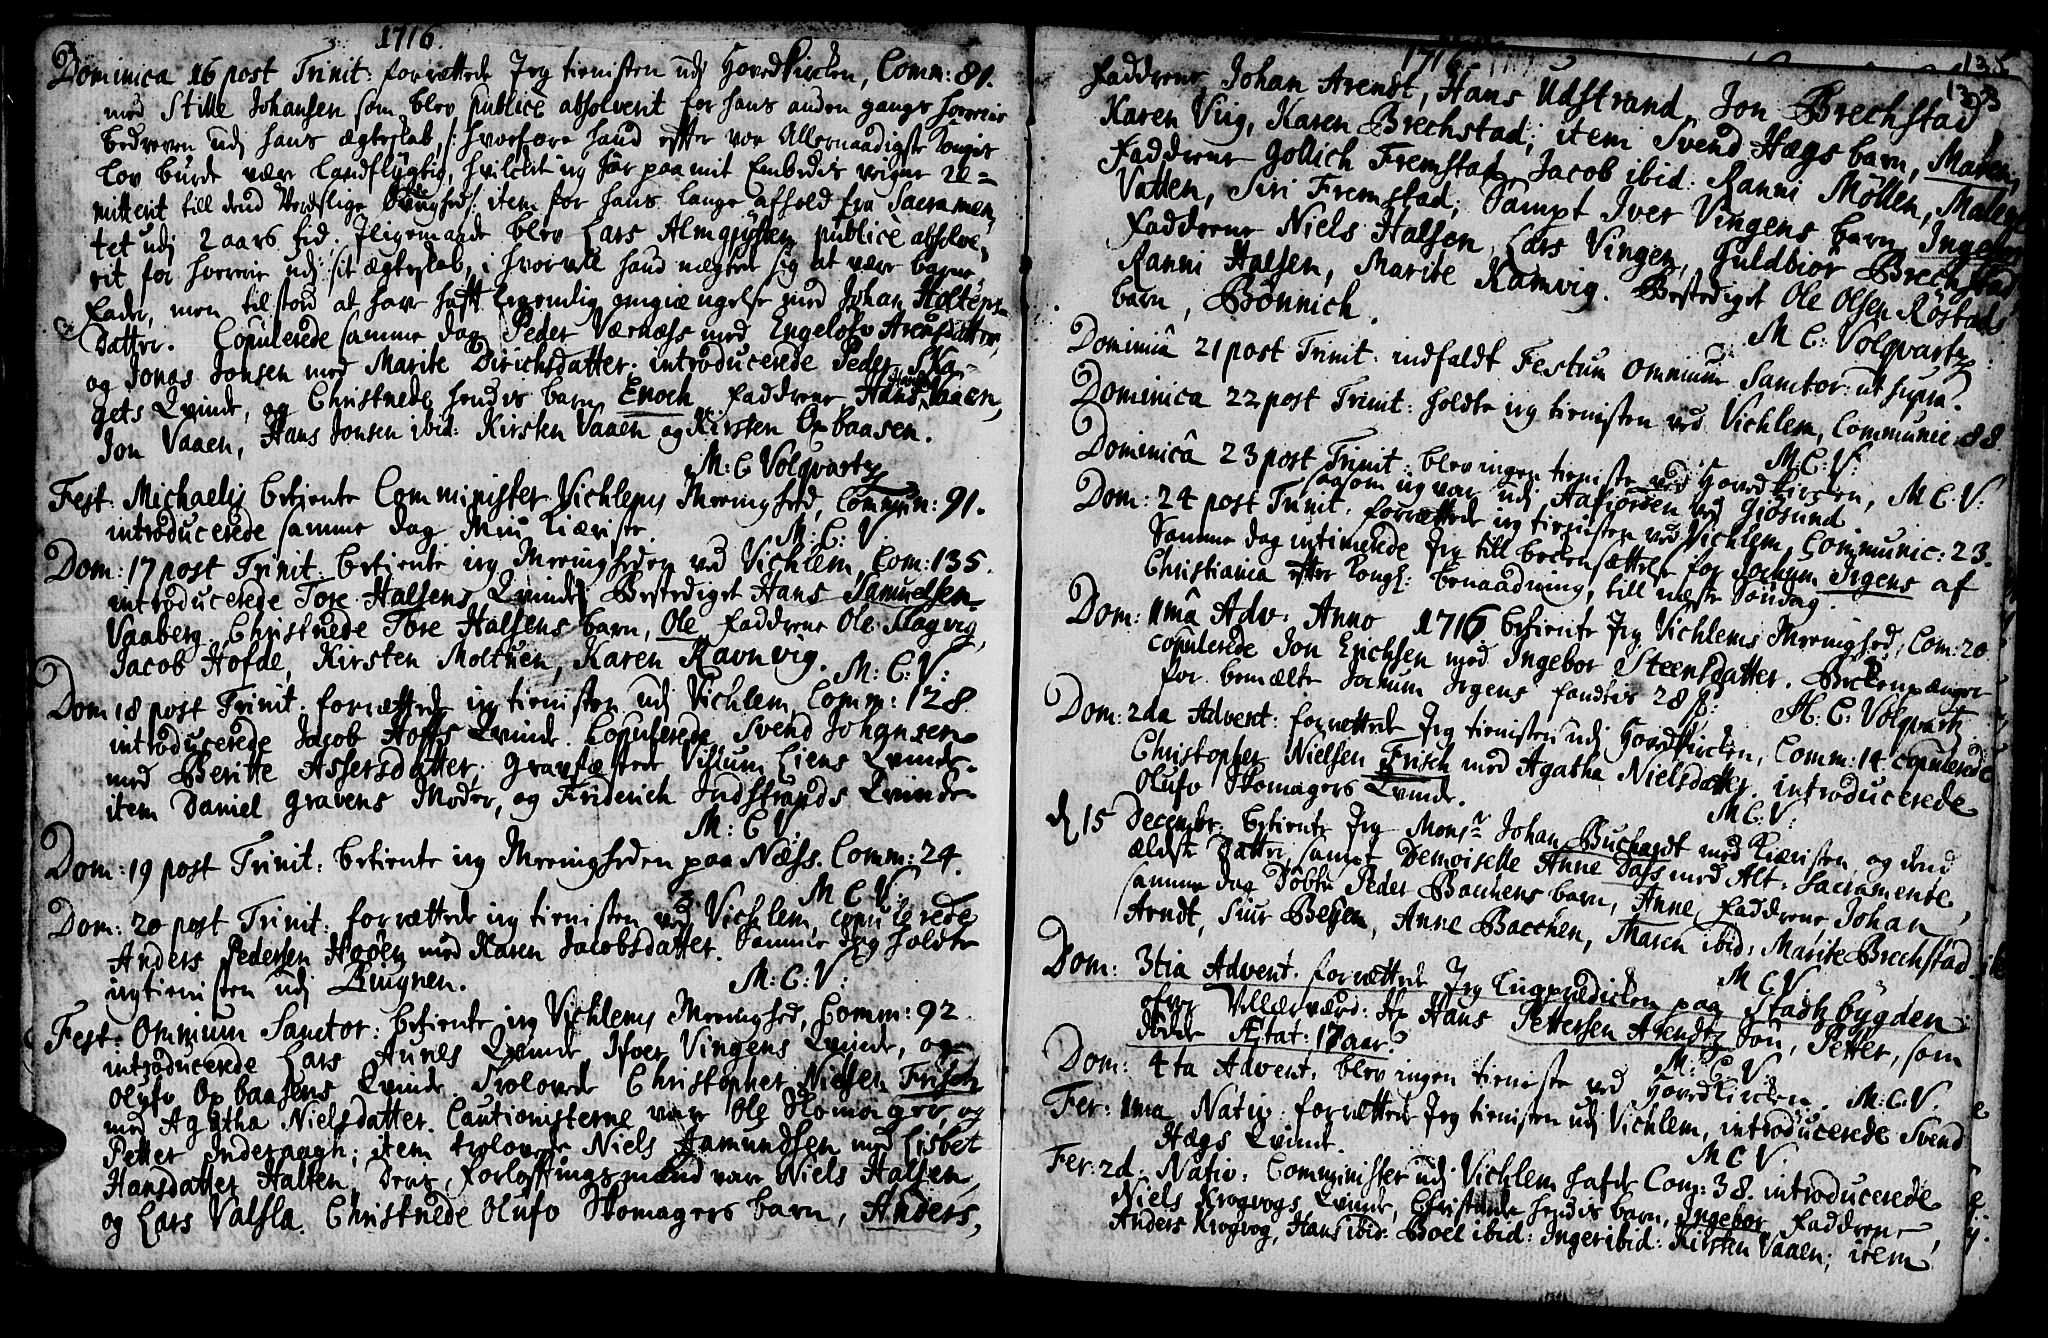 1716.
Dominica 16 post Trinit: forrettede Jeg tienisten udj HovedKircken, Comm: 81.
med Stille Johansen som blev publicè absolverit for hans anden gangs horerie
bedreven udj hans ægteskab, /: hvorfore hand efter vor Allernaadigste Konges
Lov burde være Landflygtig, hvilcket jeg har paa mit Embedis vegne re=
mitterit till dend Verdslige Øfrighed :/ item for hans lange afhold fra Sacramen=
tet udj 2 aars tid. Iligemaade blev Lars Almgjysten publicè absolve=
rit for horerie udj sit ægteskab, i hvorvel hand negter sig at være barne
fader, men tilstod at have haft legemlig omgiængelse med Johan Holtens
Datter. Copulerede samme dag Peder Værnæss med Engelohv Arensdatter,
og Jonas Jonsen med Marite Dirichsdatter; introducerede Peder Ska=
gets Qvinde, og Christnede hendis barn Enoch Faddrene Hans Hansen Vaaen,
Jon Vaaen, Hans Jonsen ibid: Kirsten Vaaen og Kirsten Opbaasen.
M: C Volqvartz
Fest: Michaelis betiente Comminister Vichlems Meenighed, Commun: 91.
introducerede samme dag Min Kiæriste. M: C: V.
Dom: 17 post Trinit. betiente jeg Meenigheden ved Vichlem, Com: 135.
introducerede Tore Halsens Qvinde; Bestediget Hans Samuelsen
Vaaberg. Christnede Tore Halsens barn, Ole Faddrene Ole Klagvig,
Jacob Hofde, Kirsten Moltuen, Karen Ravnvig. M: C: V:
Dom 18 post Trinit. forrettede jeg tienisten udj Vichlem Comm: 128
introducerede Jacob Hoffs Qvinde. Copulerede Svend Johansen
med Beritte Assersdatter; gravfæstede Vislum Liens Qvinde.
item Daniel Gravens Moder, og Friderich Indstrands Qvinde
M: C V.
Dom: 19 post Trinit. betiente jeg Meenigheden paa Næss. Comm: 24.
M C V:
Dom: 20 post Trinit. forrettede jeg tienisten ved Vichlem, copulerede
Anders Pedersen Hoøen med Karen Jacobsdatter. Samme dag holdte
jeg tienisten udj Biugnen. M: C: V:
Fest: Omnium Sanctor: betiente jeg Vichlems Meenighed, Comm: 92
introducerede Lars Aunes Qvinde, Ifver Vingens Qvinde, og
Olufo Opbaasens Qvinde. Trolovede Christopher Nielsen Frisch
med Agatha Nielsdatter. Cautionisterne var Ole Skomager, og
Petter Inderhagh; item trolovede Niels Hamundsen med Lisbet
Hansdatter Halten Deris Forlofftningsmænd var Niels Halsen,
og Lars Valsla. Christnede Olufo Skomagers barn, Anders,
1716
135
133
Faddrene, Johan Arendt, Hans Udstrand, Jon Brechstad,
Karen Viig, Karen Brechstad; item Svend Hægs barn, Maren,
Faddrene Gollich Fremstad, Jacob ibid: Ranni Möllen, Malene
Vatten, Siri Fremstad; Sampt Iver Vingens barn Ingebor
Faddrene Niels Halsen, Lars Vingen, Guldbiör Brechstad
Ranni Halsen, Marite Ramvig. Bestediget Ole Olsen Röstads
barn, Bönnich. M C: Volqvartz:
Dominicâ 21 post Trinit: indfaldt Festum Omnium Sanctor: ut supra.
Dominica 22 post Trinit: holdte jeg tienisten ved Vichlem, Communic: 88.
M: C: V:
Dominicâ 23 post Trinit: blev ingen tieniste ved HovedKircken, M C. V:
saasom jeg var udj Hafiorden ved Giösund
Dom: 24 post Trinit. forrettede jeg tienisten ved Vichlem, Communic: 23.
Samme dag intimerede Jeg till beckensættelse for Jochum Irgens af
Christiania efter Kongl: benaadning, till neste Söndag.
Dom: 1mâ Adv: Anno 1716 betiente Jeg Vichlems Meenighed, Com: 20
copulerede Jon Erichsen med Ingebor Steensdatter. Beckenpænger
for bemælte Jocum Irgens fandtes 28 ß: M: C: Volqvartz
Dom: 2da Advent: forrettede Jeg tienisten udj Hovedkircken, Comm: 14 copulerede
Christopher Nielsen Frisch med Agatha Nielsdatter. introducerede
Olufo Skomagers Qvinde. M C: V:
d 15 December betiente Jeg Monsr Johan Buchardt med Kiæristen og dend
ældste Datter, sampt Demoiselle Anne Dass med Alt: Sacramente,
samme dag Döbte Peder Bachens barn, Anne, Faddrene, Johan
Arndt, Siur Beyen, Anne Bacchen, Maren ibid: Marite Brechstad.
M C V.
Dom: 3tia Advent. forrettede Jeg Liigprædicken paa Stadtzbygden
ofver Vellærværd: Hr Hans Pettersen Arendtz Sön, Petter, som
döde Ætat: 17 aar. M: C V.
Dom: 4ta Advent. blev ingen tieniste ved Hovedkircken. M: C. V.
Fer: 1ma Nativ: forrettede Jeg tienisten udj Vichlem, introducerede Svend
Hægs Qvinde. M C V
Fer: 2d: Nativ: Comminister udj Vichlem hafde Com: 38. introducerede
Niels Krogvogs Qvinde, Christnede hendis barn, Ingebor, Faddrene,
Anders Krogvog, Hans ibid: Boel ibid: Inger ibid: Kirsten Vaaen; item